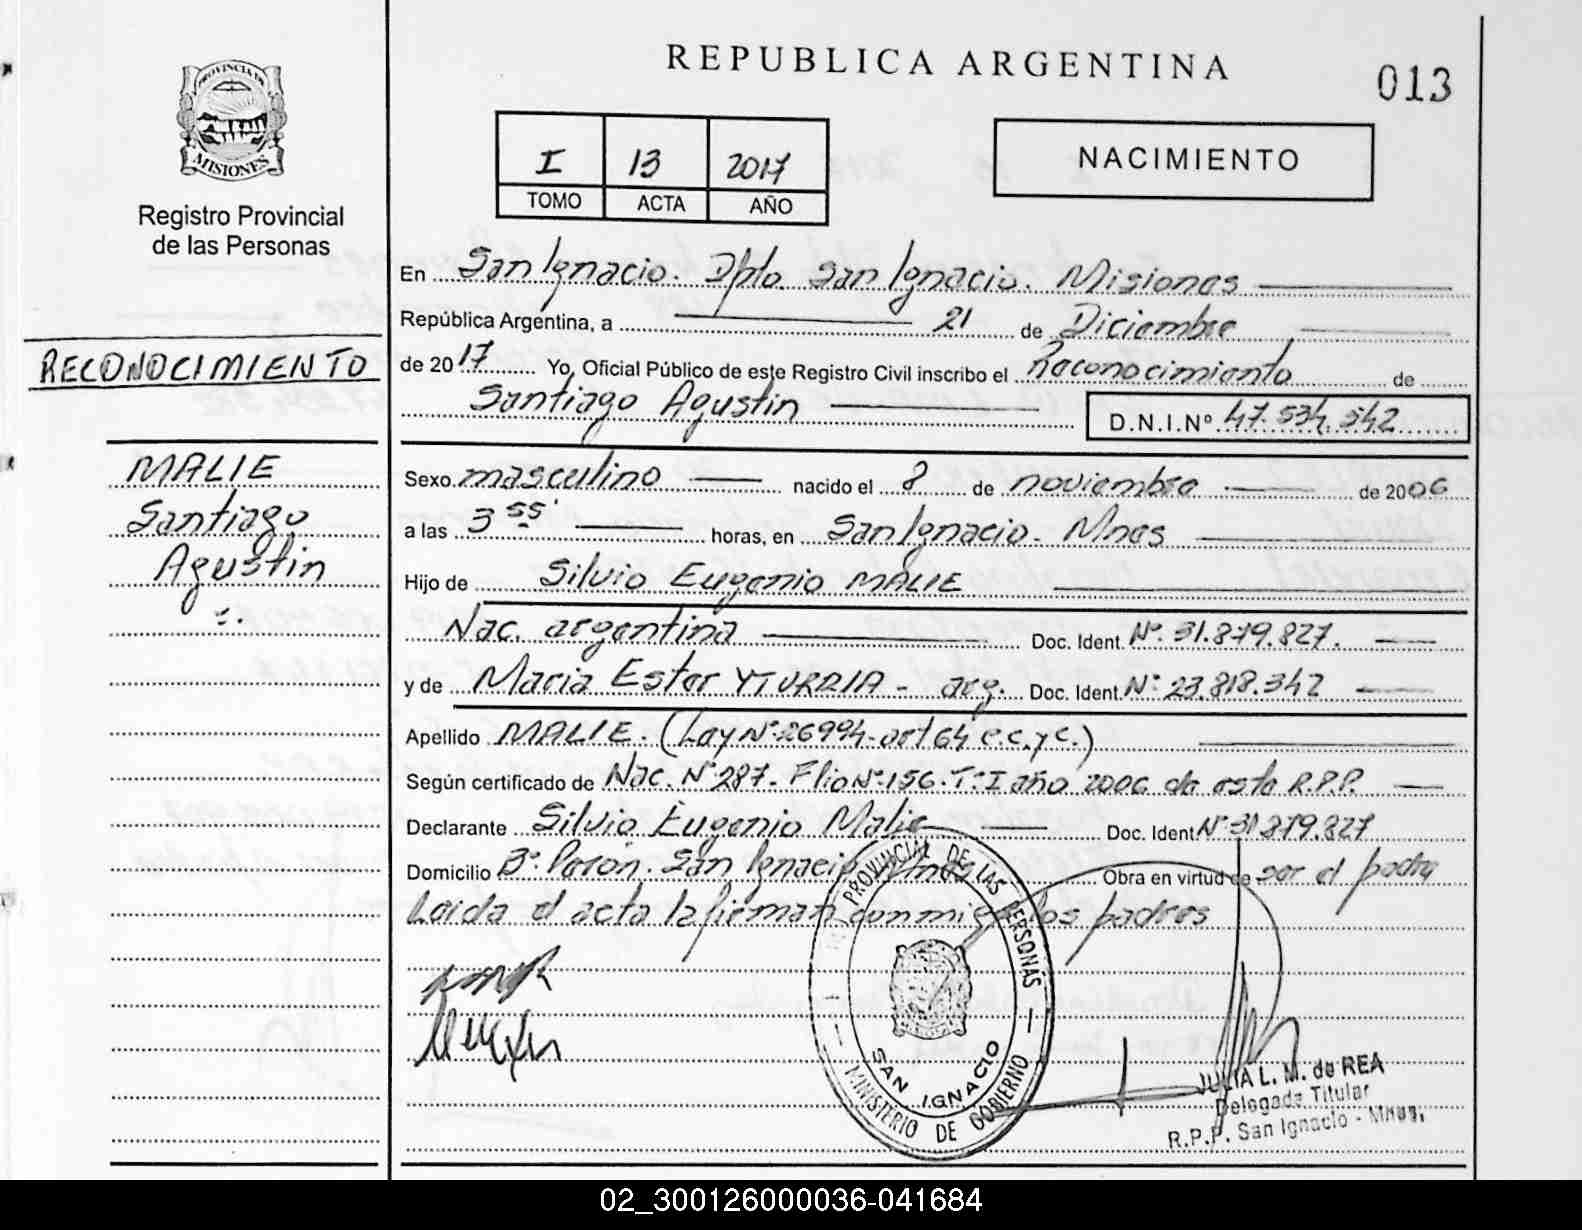 REPUBLICA ARGENTINA
013
PROVINCIA DE
MISIONES
Registro Provincial
de las Personas
I 13 2017
TOMO ACTA AÑO
NACIMIENTO
En San Ignacio. Dpto. San Ignacio. Misiones
República Argentina, a 21 de Diciembre
RECONOCIMIENTO
de 2017 Yo, Oficial Público de este Registro Civil inscribo el Reconocimiento de
Santiago Agustin D.N.I.Nº 47.534.542
MALIE
Santiago
Agustin
Sexo masculino nacido el 8 de noviembre de 2006
a las 3 55' horas, en San Ignacio - Mnes
Hijo de Silvio Eugenio MALIE
Nac. argentina Doc. Ident Nº. 31.879.827.
y de Maria Ester YTURRIA - arg. Doc. Ident Nº 23.818.342
Apellido MALIE. (Ley Nº 26994-art 64 c.c.y c.)
Según certificado de Nac. Nº 287 - Flio Nº 156. Tº I año 2006 de este R.P.P.
Declarante Silvio Eugenio Malie Doc. Ident Nº 31.879.827
Domicilio Bº Perón. San Ignacio Mnes Obra en virtud de ser el padre
Leida el acta la firman conmigo los padres
PROVINCIAL DE LAS PERSONAS
SAN IGNACIO
MINISTERIO DE GOBIERNO
JULIA L. M. de REA
Delegada Titular
R.P.P. San Ignacio - Mnes.
02_300126000036-041684